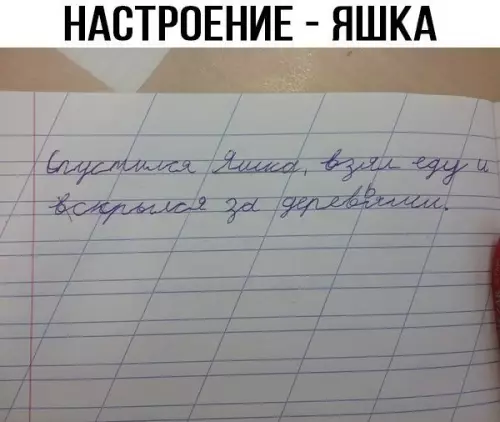 НАСТРОЕНИЕ - ЯШКА
Спустился Яшка, взял еду и
вскрылся за деревьями.